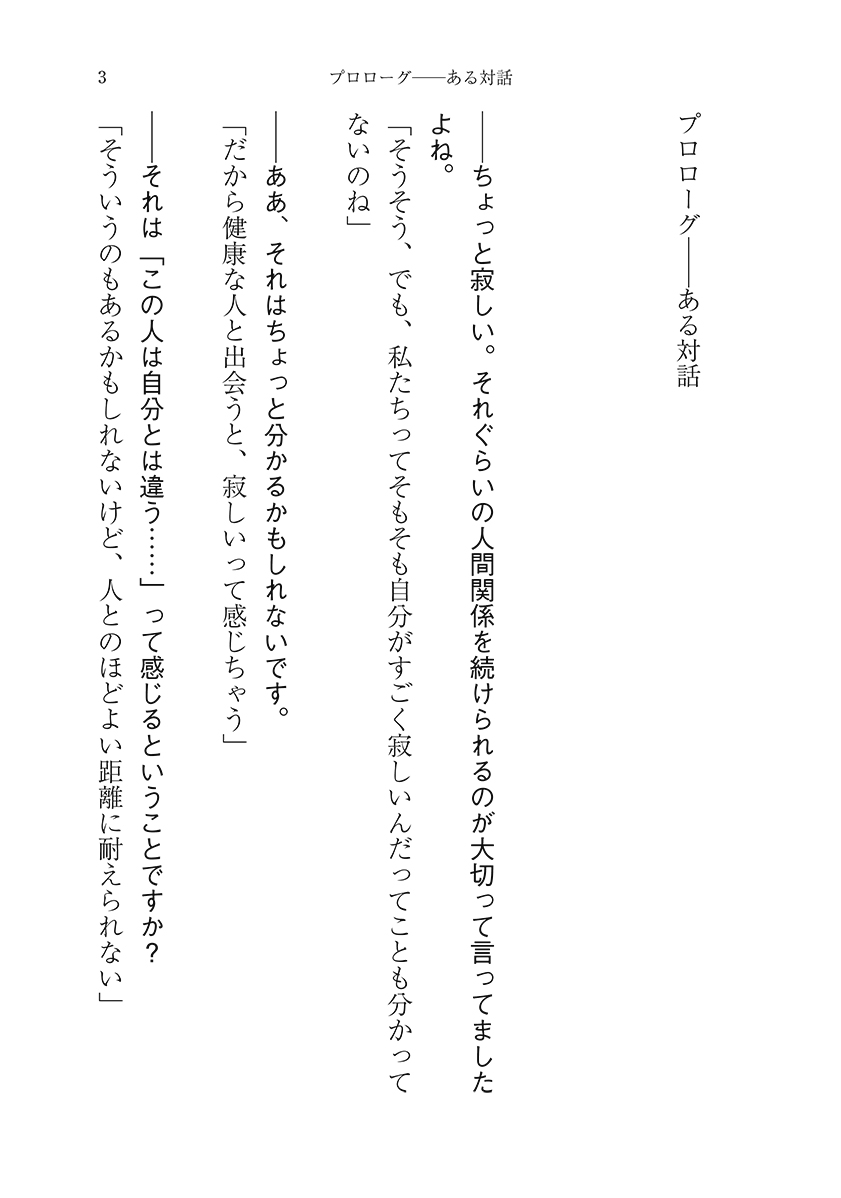 3
プロローグ――ある対話
プロローグ――ある対話
――ちょっと寂しい。それぐらいの人間関係を続けられるのが大切って言ってました
よね。
「そうそう、でも、私たちってそもそも自分がすごく寂しいんだってことも分かって
ないのね」
――ああ、それはちょっと分かるかもしれないです。
「だから健康な人と出会うと、寂しいって感じちゃう」
――それは「この人は自分とは違う……」って感じるということですか？
「そういうのもあるかもしれないけど、人とのほどよい距離に耐えられない」